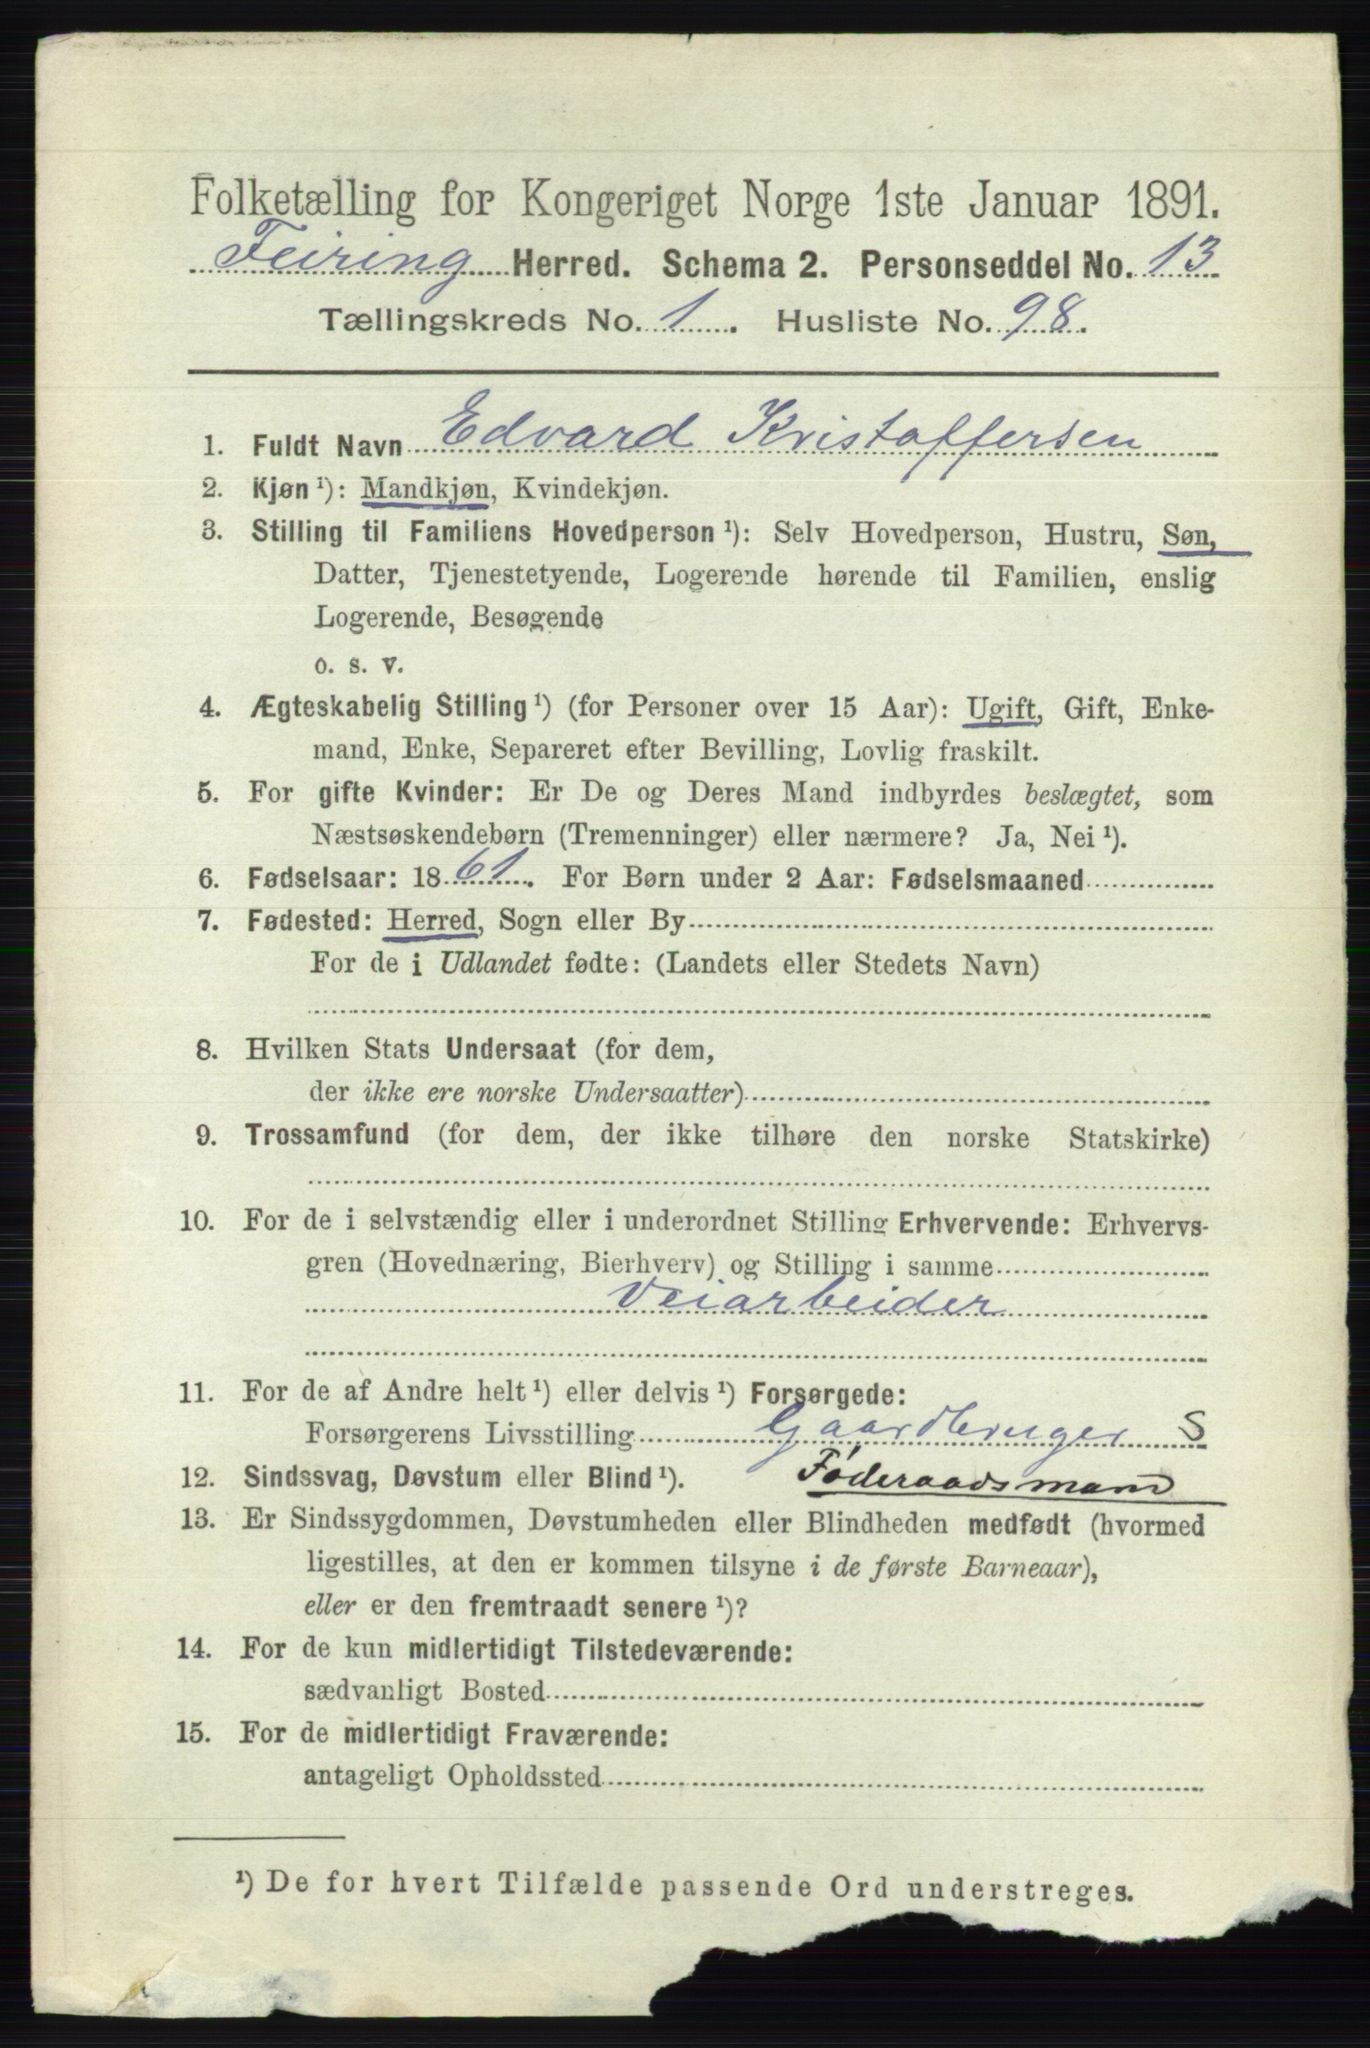 Folketælling for Kongeriget Norge 1ste Januar 1891.
Feiring Herred. Schema 2. Personseddel No. 13
Tællingskreds No. 1. Husliste No. 98.
1. Fuldt Navn Edvard Kristoffersen
2. Kjøn ¹): Mandkjøn, Kvindekjøn.
3. Stilling til Familiens Hovedperson ¹): Selv Hovedperson, Hustru, Søn,
Datter, Tjenestetyende, Logerende hørende til Familien, enslig
Logerende, Besøgende
o. s. v.
4. Ægteskabelig Stilling ¹) (for Personer over 15 Aar): Ugift, Gift, Enke-
mand, Enke, Separeret efter Bevilling, Lovlig fraskilt.
5. For gifte Kvinder: Er De og Deres Mand indbyrdes beslægtet, som
Næstsøskendebørn (Tremenninger) eller nærmere? Ja, Nei ¹).
6. Fødselsaar: 1861. For Børn under 2 Aar: Fødselsmaaned
7. Fødested: Herred, Sogn eller By
For de i Udlandet fødte: (Landets eller Stedets Navn)
8. Hvilken Stats Undersaat (for dem,
der ikke ere norske Undersaatter)
9. Trossamfund (for dem, der ikke tilhøre den norske Statskirke)
10. For de i selvstændig eller i underordnet Stilling Erhvervende: Erhvervs-
gren (Hovednæring, Bierhverv) og Stilling i samme
Veiarbeider
11. For de af Andre helt ¹) eller delvis ¹) Forsørgede:
Forsørgerens Livsstilling Gaardbruger S
12. Sindssvag, Døvstum eller Blind ¹). Føderaadsmand
13. Er Sindssygdommen, Døvstumheden eller Blindheden medfødt (hvormed
ligestilles, at den er kommen tilsyne i de første Barneaar),
eller er den fremtraadt senere ¹)?
14. For de kun midlertidigt Tilstedeværende:
sædvanligt Bosted
15. For de midlertidigt Fraværende:
antageligt Opholdssted
¹) De for hvert Tilfælde passende Ord understreges.